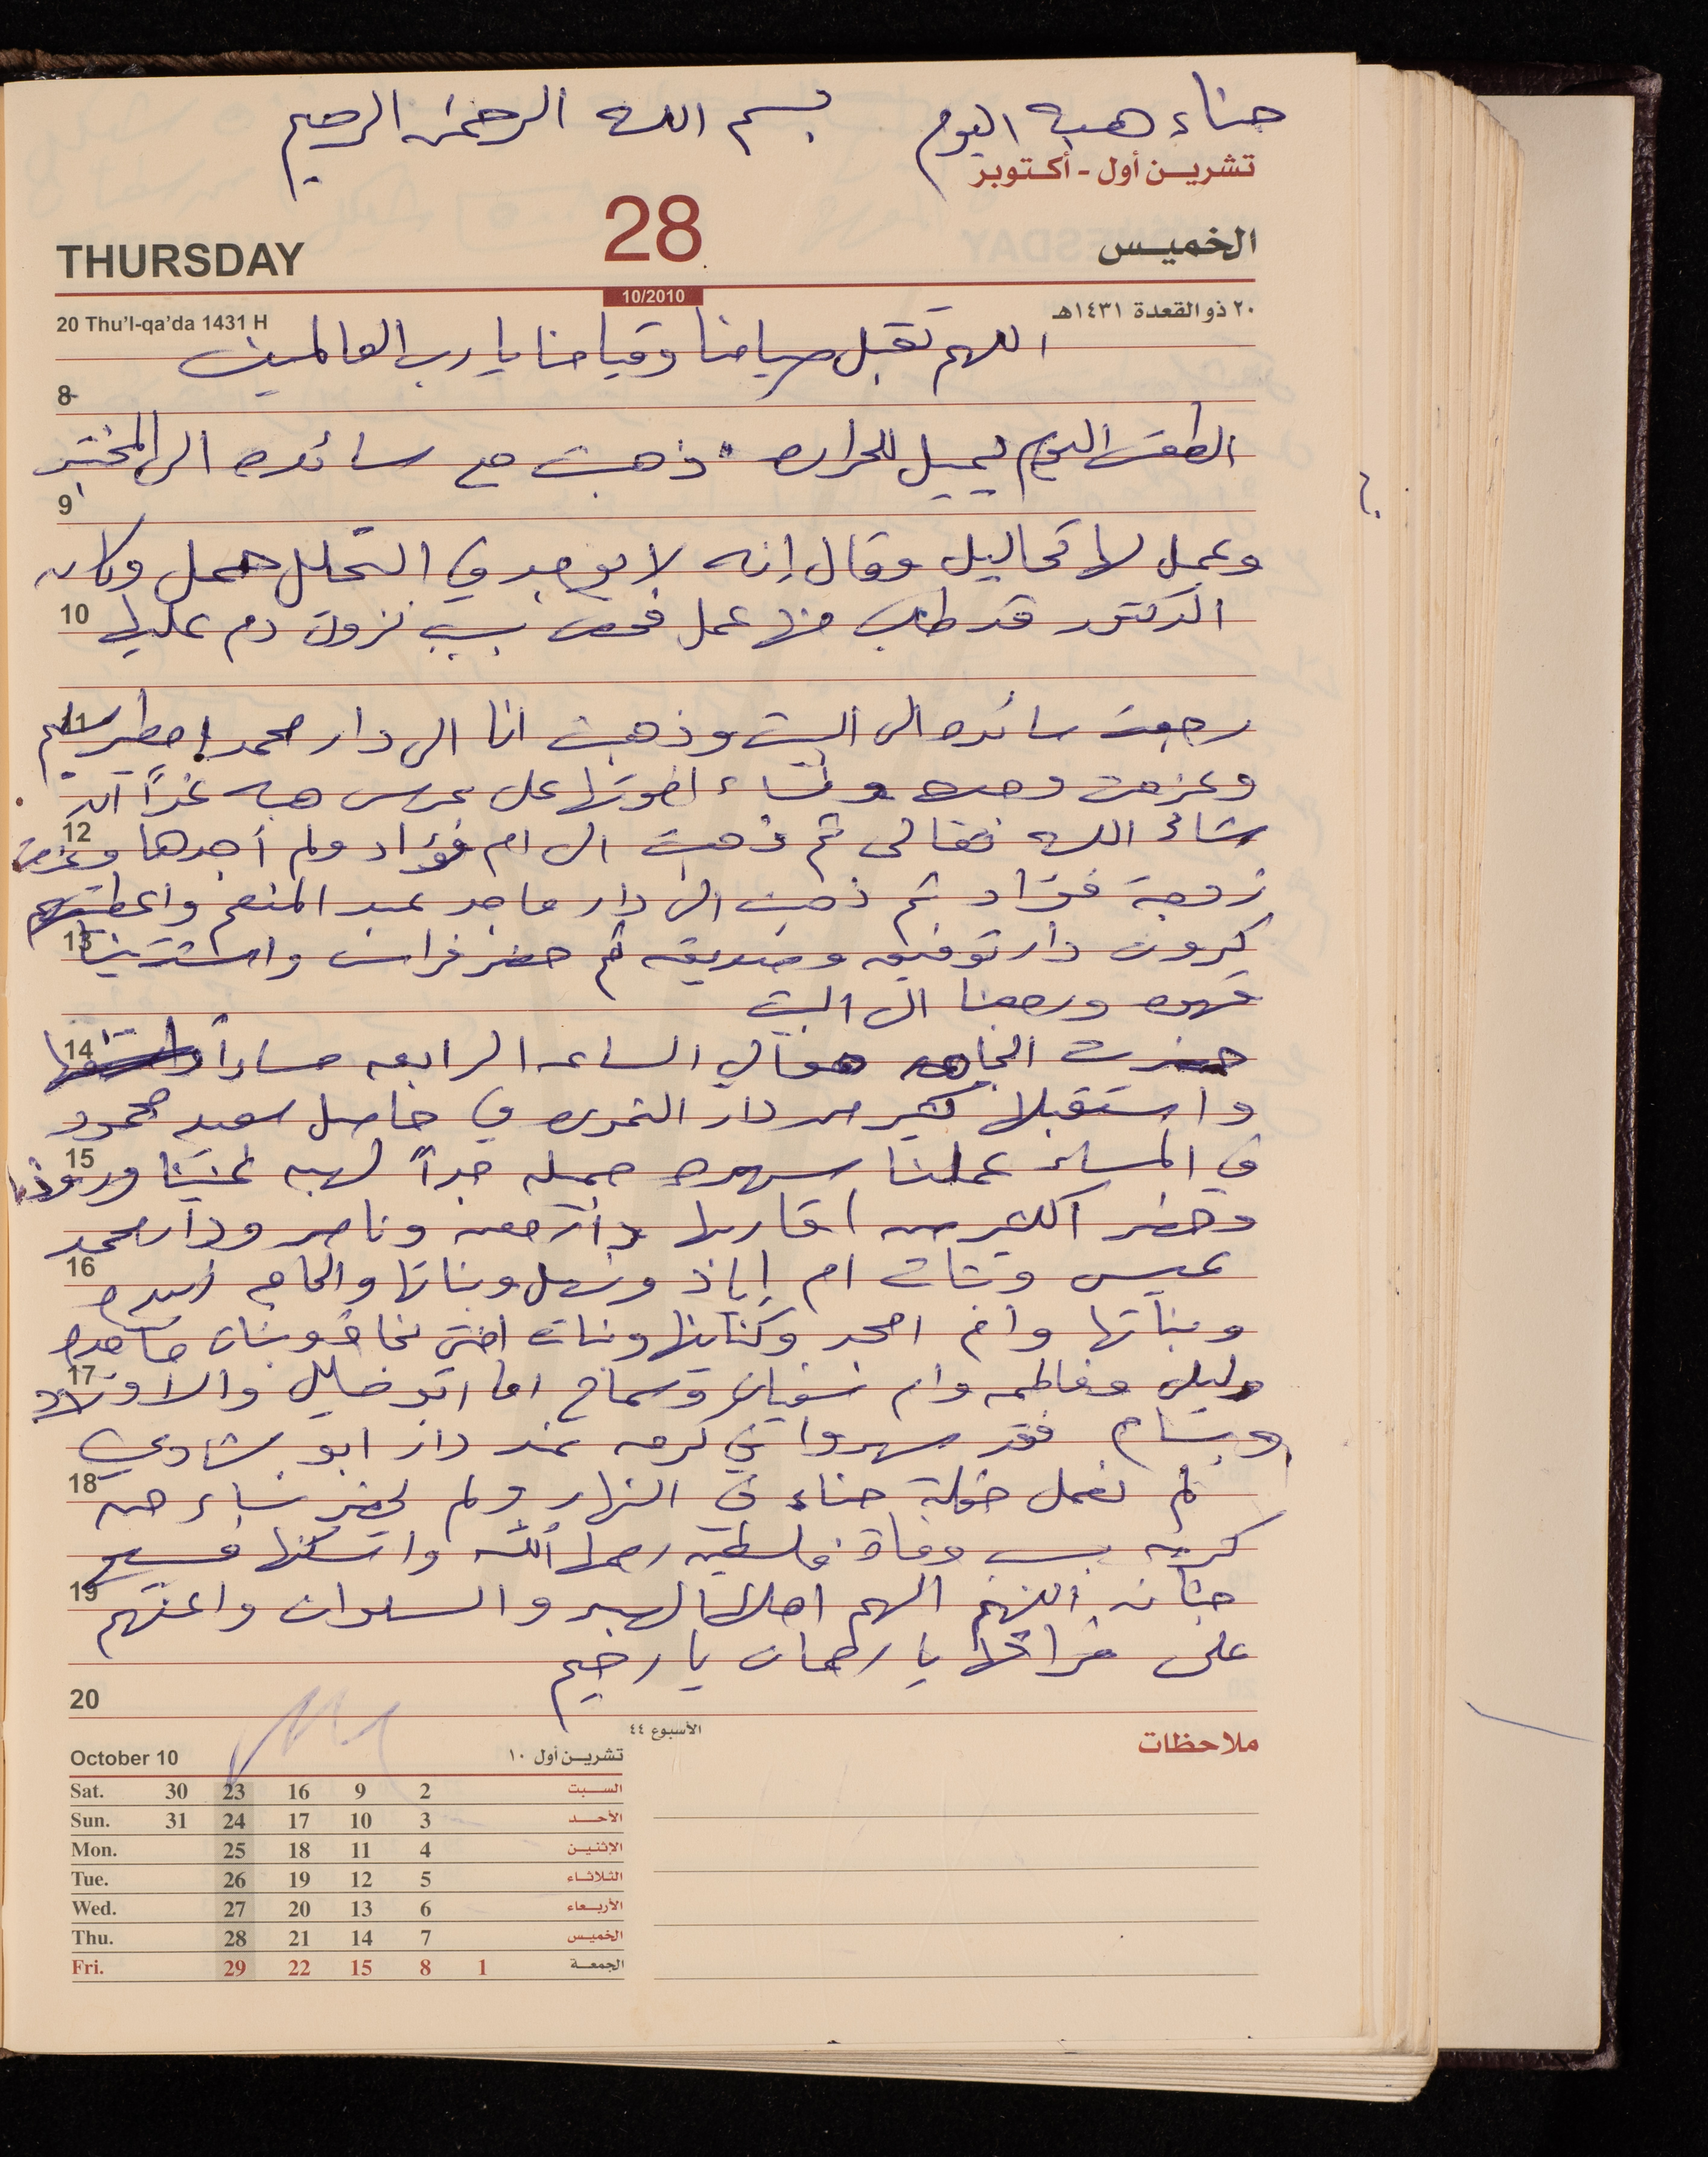 حناء هبه اليوم بسم الله الرحمن الرحيم
تشرين أول - أكتوبر
THURSDAY 28 الخميس
10/2010
20 Thu'l-qa'da 1431 H ٢٠ ذو القعدة ١٤٣١هـ
اللهم تقبل صيامنا وقيامنا يا رب العالمين
8
الطقس اليوم يميل للحراره ذهبت مع سائده الى المختبر
9
وعمل لها تحاليل وقال إنه لا يوجد في التحلل حمل وكان
10 الدكتور قد طلب منها عمل فحص بسبب نزول دم عليها
11 رجعت سائده الى البيت وذهبت انا الى دار محمد اسليم
وعزمت ونساء اخوتها على عرس هبه غداً ان
12 شاء الله تعالى ثم ذهبت الى ام فؤاد ولم أجدها وعزمت
زوجة فؤاد ثم ذهبت الى دار ماجد عبد المنعم واعطيتهم
13 كروت دار توفيق وصديقه ثم حضر فراس واشترينا
قهوه ورجعنا الى البيت
14 حضرت الجاهه حوالي الساعه الرابعه مساءاً
واستقبلا كبير من دار النمره في حاصل سعيد محمود
15 في المساء عملنا سهره جميله جداً لهبه غنينا ورقصنا
وحضر أكثر من اقاربها دار جمعه وناصر ودار محمد
16 عيسى وبنات ام إياد ونهل وبناتها والحاجه
وبناتها وام امجد وكناينها وبنات اختي نجاح وبنات ماجده
17 وليلى وفاطمه وام سفيان وسماح اما ابو خليل والاولاد
وبسام فقد سهروا في كرمه عند دار ابو شادي
18 لم نعمل حفلة حناء في النهار ولم يحضر نساء من
كرمه بسبب وفاة فلسطين رحمها الله واسكنها فسيح
19 جنانه اللهم الهم اهلها الصبر والسلوان واعنهم
على فراقها يا رحمان يا رحيم
20
الأسبوع ٤٤
ملاحظات
October 10 تشرين أول ١٠
Sat. 30 23 16 9 2 السبت
Sun. 31 24 17 10 3 الأحد
Mon. 25 18 11 4 الإثنين
Tue. 26 19 12 5 الثلاثاء
Wed. 27 20 13 6 الأربعاء
Thu. 28 21 14 7 الخميس
Fri. 29 22 15 8 1 الجمعة